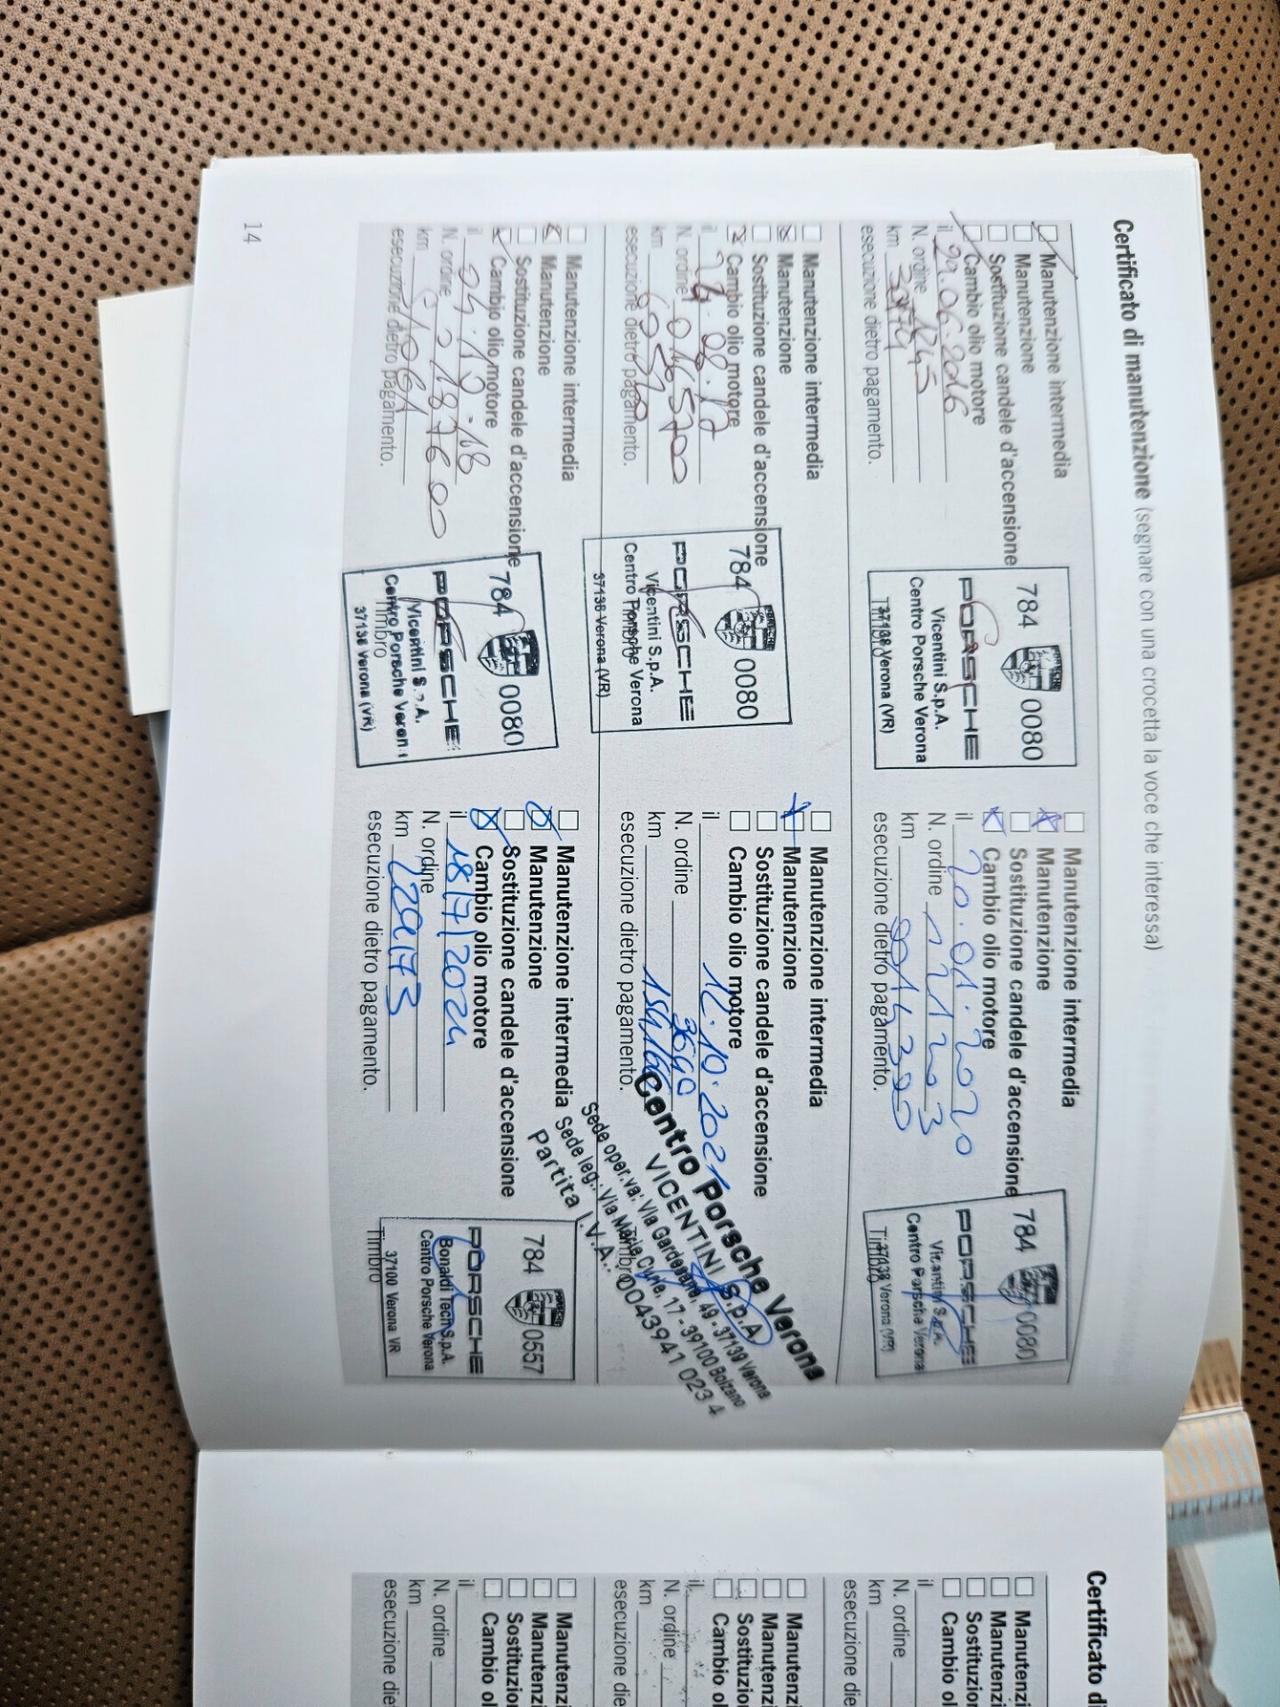 Certificato di manutenzione (segnare con una crocetta la voce che interessa)
Manutenzione intermedia
Manutenzione
Sostituzione candele d'accensione
Cambio olio motore
il 29.06.2016
N. ordine
km
esecuzione dietro pagamento.
784 0080
PORSCHE
Vicentini S.p.A.
Centro Porsche Verona
37138 Verona (VR)
Timbro
Manutenzione intermedia
Manutenzione
Sostituzione candele d'accensione
Cambio olio motore
il 20.01.2020
N. ordine 121203
km
esecuzione dietro pagamento.
784 0080
PORSCHE
Vicentini S.p.A.
Centro Porsche Verona
37138 Verona (VR)
Timbro
Manutenzione intermedia
Manutenzione
Sostituzione candele d'accensione
Cambio olio motore
il
N. ordine
km
esecuzione dietro pagamento.
784 0080
PORSCHE
Vicentini S.p.A.
Centro Porsche Verona
37138 Verona (VR)
Timbro
Manutenzione intermedia
Manutenzione
Sostituzione candele d'accensione
Cambio olio motore
il 12.10.2021
N. ordine
km
esecuzione dietro pagamento.
Centro Porsche Verona
VICENTINI S.p.A.
Sede oper.va: Via Gardesane, 49 - 37139 Verona
Sede leg.: Via Marie Curie, 17 - 39100 Bolzano
Partita I.V.A.: 00043941 023 4
Timbro
Manutenzione intermedia
Manutenzione
Sostituzione candele d'accensione
Cambio olio motore
il
N. ordine 218 7600
km
esecuzione dietro pagamento.
784 0080
PORSCHE
Vicentini S.p.A.
Centro Porsche Verona
37138 Verona (VR)
Timbro
Manutenzione intermedia
Manutenzione
Sostituzione candele d'accensione
Cambio olio motore
il 18/7/2024
N. ordine
km
esecuzione dietro pagamento.
784 0557
PORSCHE
Bonaldi Tech S.p.A.
Centro Porsche Verona
37100 Verona VR
Timbro
14
Certificato d
Manutenzi
Manutenzi
Sostituzio
Cambio ol
il
N. ordine
km
esecuzione die
Manutenzi
Manutenzi
Sostituzio
Cambio ol
il
N. ordine
km
esecuzione die
Manutenzi
Manutenzi
Sostituzio
Cambio ol
il
N. ordine
km
esecuzione die